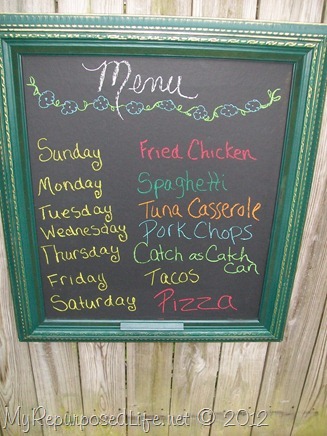 Menu
Sunday Fried Chicken
Monday Spaghetti
Tuesday Tuna Casserole
Wednesday Pork Chops
Thursday Catch as Catch
can
Friday Tacos
Saturday Pizza
MyRepurposedLife.net © 2012